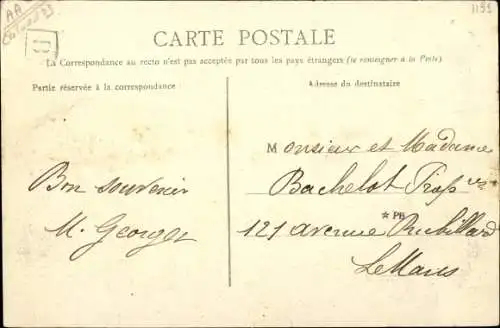 1151
CARTE POSTALE
La Correspondance au recto n'est pas acceptée par tous les pays étrangers (se renseigner à la Poste)
Partie réservée à la correspondance
Adresse du destinataire
Monsieur et Madame
Bachelot Prof
*PB
121 avenue Rubillard
Le Mans
Bon souvenir
M. Georges